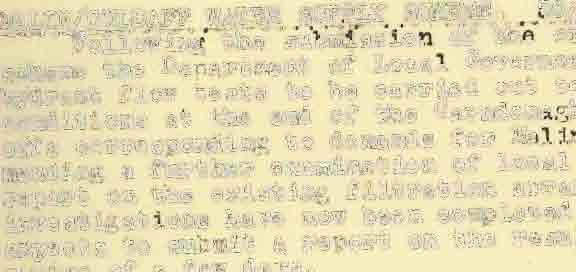 WATER SUPPLY SCHEME
Following the submission of the
scheme the Department of Local Governme
hydrant flow tests to be carried out
conditions at the end of the
corresponding to demands for Malin
a further examination of local
report on the existing filtration
investigations have now been completed
expects to submit a report on the resu
of a few days.